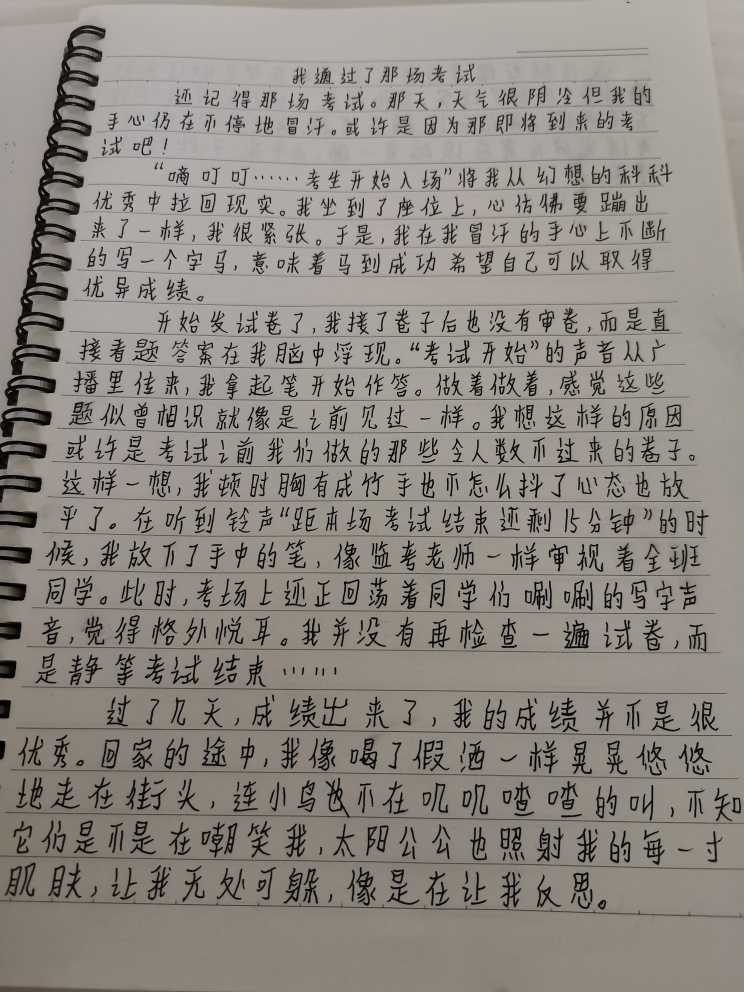 我通过了那场考试
还记得那场考试。那天,天气很阴冷但我的
手心仍在不停地冒汗。或许是因为那即将到来的考
试吧!
“嘀叮叮……考生开始入场”将我从幻想的科科
优秀中拉回现实。我坐到了座位上,心仿佛要蹦出
来了一样,我很紧张。于是,我在我冒汗的手心上不断
的写一个字马,意味着马到成功希望自己可以取得
优异成绩。
开始发试卷了,我接了卷子后也没有审卷,而是直
接看题答案在我脑中浮现。“考试开始”的声音从广
播里传来,我拿起笔开始作答。做着做着,感觉这些
题似曾相识就像是之前见过一样。我想这样的原因
或许是考试之前我们做的那些令人数不过来的卷子。
这样一想,我顿时胸有成竹手也不怎么抖了心态也放
平了。在听到铃声“距本场考试结束还剩15分钟”的时
候,我放下了手中的笔,像监考老师一样审视着全班
同学。此时,考场上还正回荡着同学们唰唰的写字声
音,觉得格外悦耳。我并没有再检查一遍试卷,而
是静等考试结束……
过了几天,成绩出来了,我的成绩并不是很
优秀。回家的途中,我像喝了假酒一样晃晃悠悠
地走在街头,连小鸟也不在叽叽喳喳的叫,不知
它们是不是在嘲笑我,太阳公公也照射我的每一寸
肌肤,让我无处可躲,像是在让我反思。